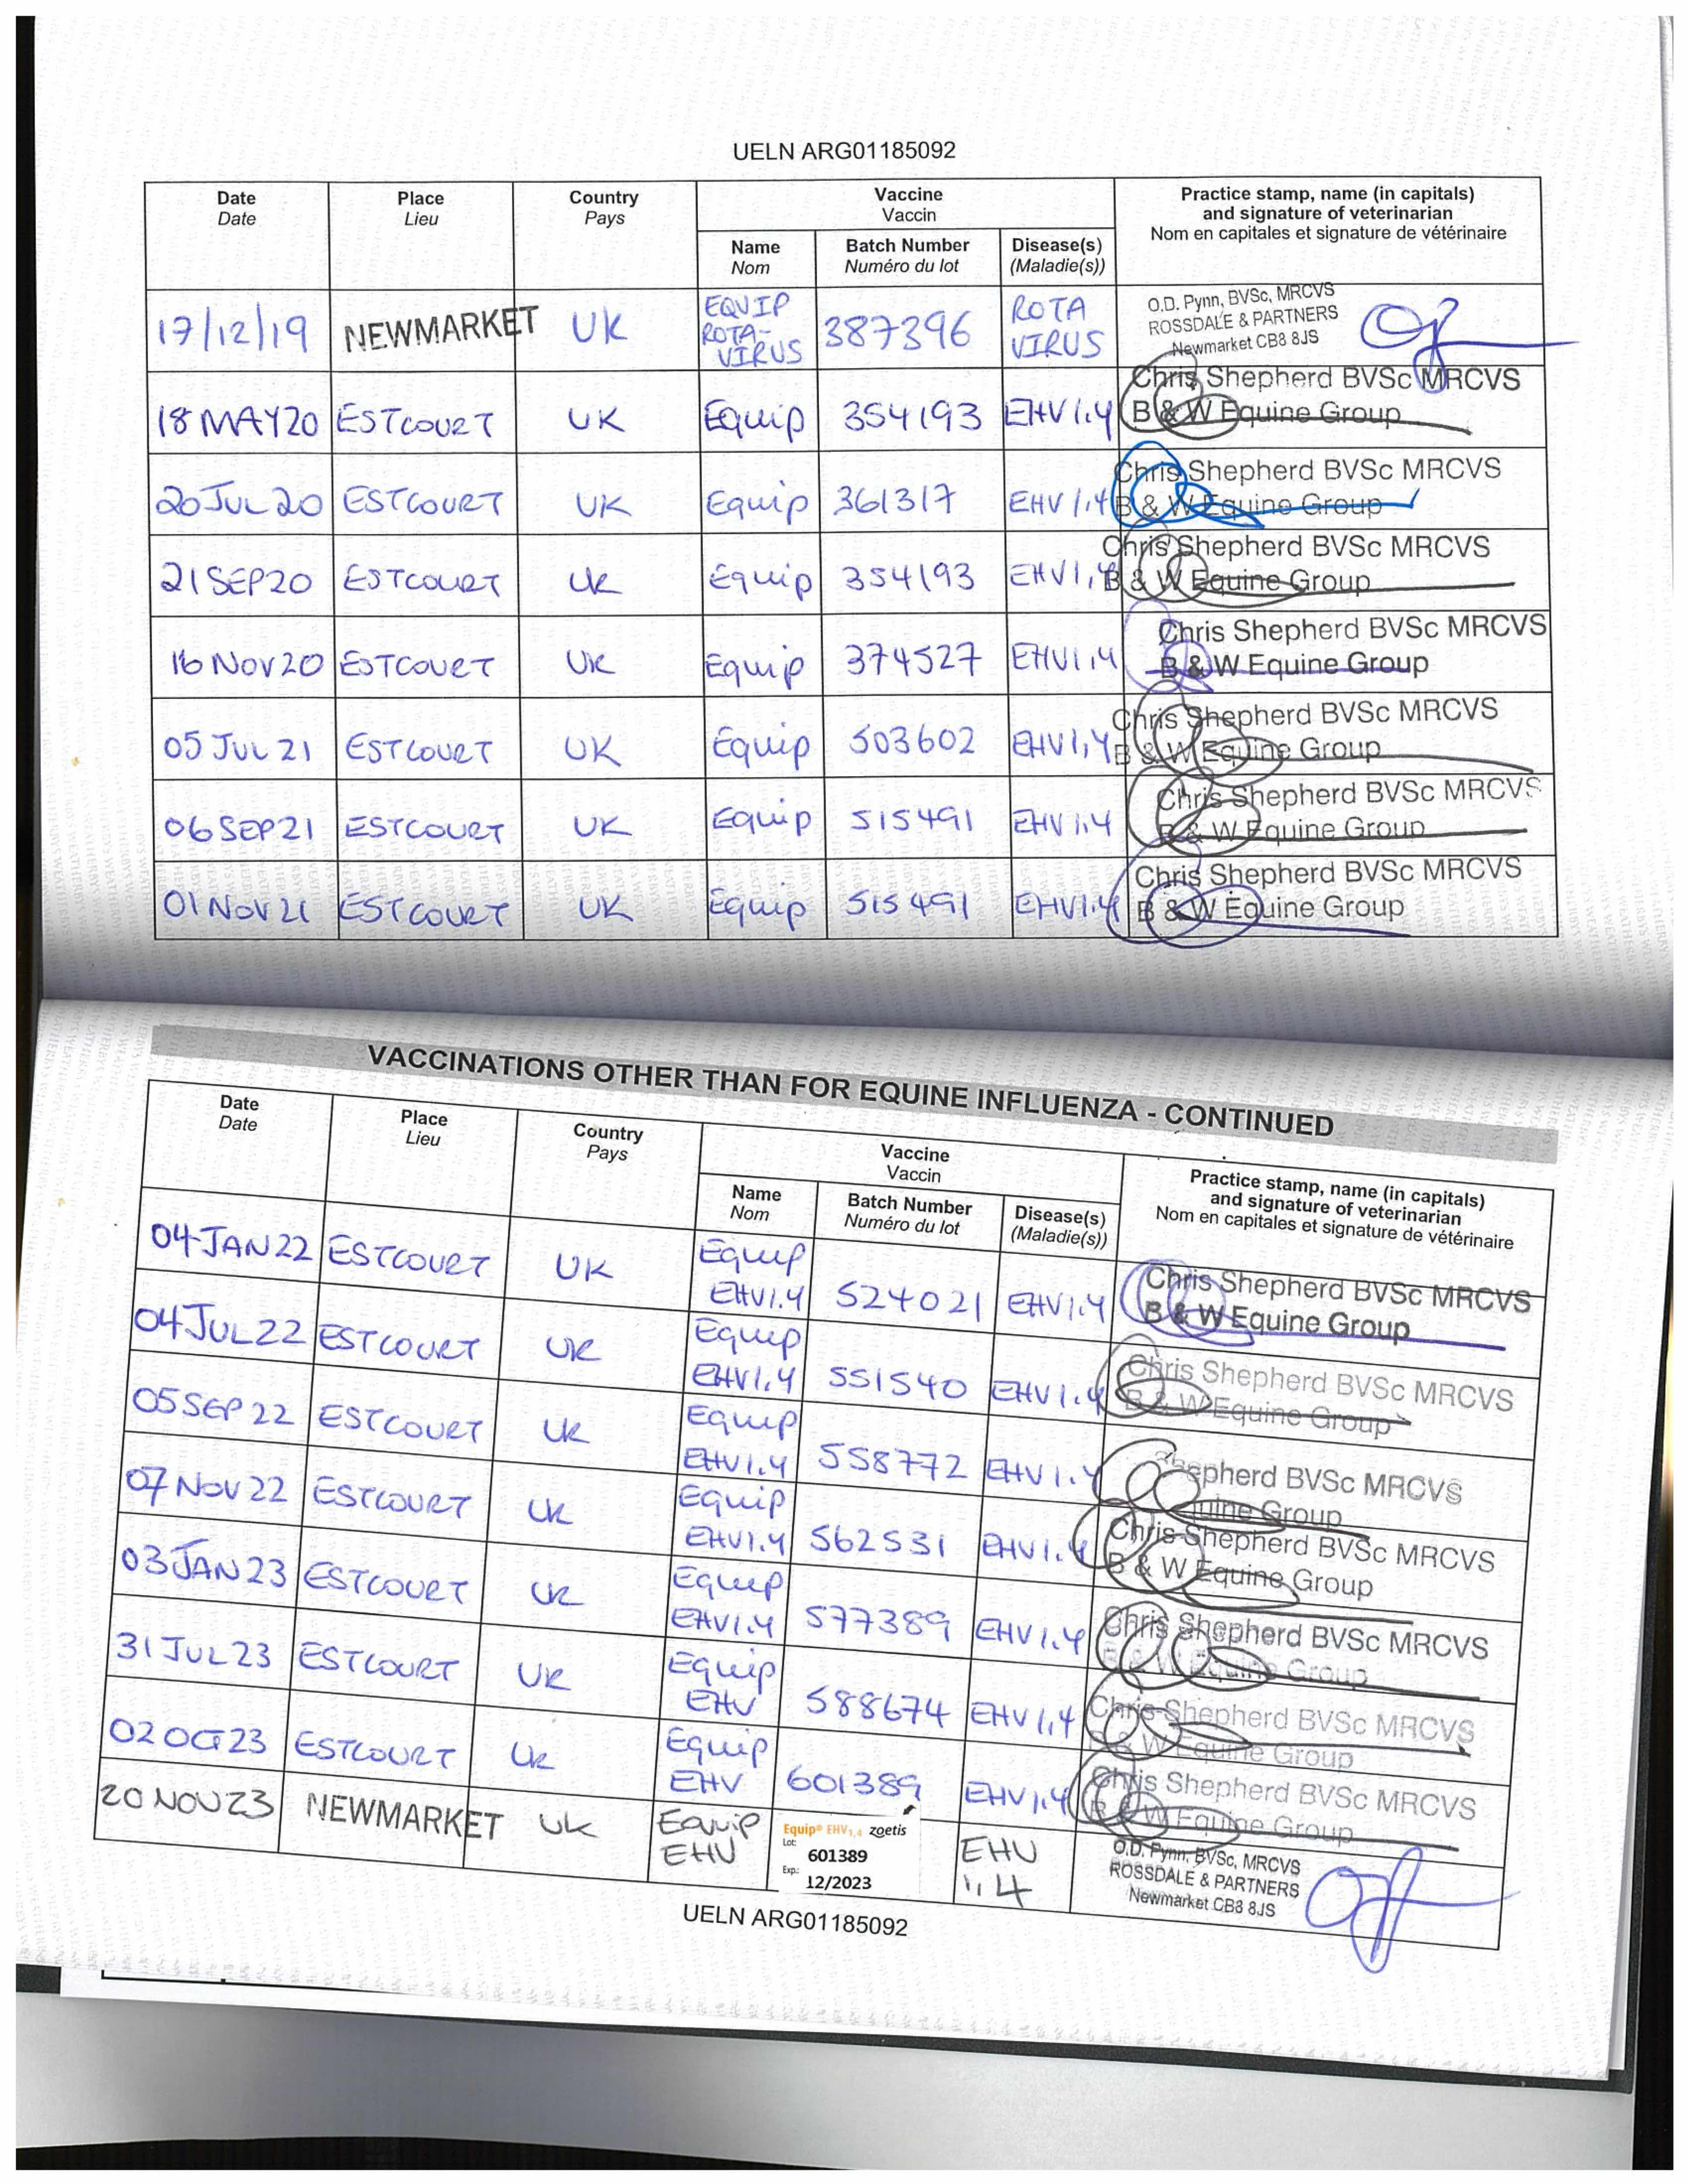 UELN ARG01185092
Date Place Country Vaccine Practice stamp, name (in capitals)
Date Lieu Pays Vaccin and signature of veterinarian
Nom en capitales et signature de vétérinaire
Name Batch Number Disease(s)
Nom Numéro du lot (Maladie(s))
17/12/19 NEWMARKET UK EQUIP ROTA-VIRUS 387396 ROTA VIRUS O.D. Pynn, BVSc, MRCVS
ROSSDALE & PARTNERS
Newmarket CB8 8JS
18 MAY20 ESTCOURT UK Equip 354193 EHV1.4 Chris Shepherd BVSc MRCVS
B & W Equine Group
20 JUL 20 ESTCOURT UK Equip 361317 EHV 1,4 Chris Shepherd BVSc MRCVS
B & W Equine Group
21 SEP20 ESTCOURT UK Equip 354193 EHV1,4 Chris Shepherd BVSc MRCVS
B & W Equine Group
16 NOV20 ESTCOURT UK Equip 374527 EHV1,4 Chris Shepherd BVSc MRCVS
B & W Equine Group
05 JUL 21 ESTCOURT UK Equip 503602 EHV1,4 Chris Shepherd BVSc MRCVS
B & W Equine Group
06 SEP21 ESTCOURT UK Equip 515491 EHV 1.4 Chris Shepherd BVSc MRCVS
B & W Equine Group
01 NOV 21 ESTCOURT UK Equip 515491 EHV1.4 Chris Shepherd BVSc MRCVS
B & W Equine Group
VACCINATIONS OTHER THAN FOR EQUINE INFLUENZA - CONTINUED
Date Place Country Vaccine Practice stamp, name (in capitals)
Date Lieu Pays Vaccin and signature of veterinarian
Nom en capitales et signature de vétérinaire
Name Batch Number Disease(s)
Nom Numéro du lot (Maladie(s))
04 JAN 22 ESTCOURT UK Equip EHV1.4 524021 EHV1.4 Chris Shepherd BVSc MRCVS
B & W Equine Group
04 JUL 22 ESTCOURT UK Equip EHV1.4 551540 EHV1.4 Chris Shepherd BVSc MRCVS
B & W Equine Group
05 SEP 22 ESTCOURT UK Equip EHV1.4 558772 EHV1.4 Shepherd BVSc MRCVS
uine Group
07 NOV 22 ESTCOURT UK Equip EHV1.4 562531 EHV1.4 Chris Shepherd BVSc MRCVS
B & W Equine Group
03 JAN 23 ESTCOURT UK Equip EHV1.4 577389 EHV1.4 Chris Shepherd BVSc MRCVS
B & W Equine Group
31 JUL 23 ESTCOURT UK Equip EHV 588674 EHV1,4 Chris Shepherd BVSc MRCVS
B & W Equine Group
02 OCT 23 ESTCOURT UK Equip EHV 601389 EHV1,4 Chris Shepherd BVSc MRCVS
B & W Equine Group
20 NOV 23 NEWMARKET UK Equip EHV Equip® EHV1,4 zoetis
Lot: 601389
Exp.: 12/2023
EHV 1,4 O.D. Pynn, BVSc, MRCVS
ROSSDALE & PARTNERS
Newmarket CB8 8JS
UELN ARG01185092